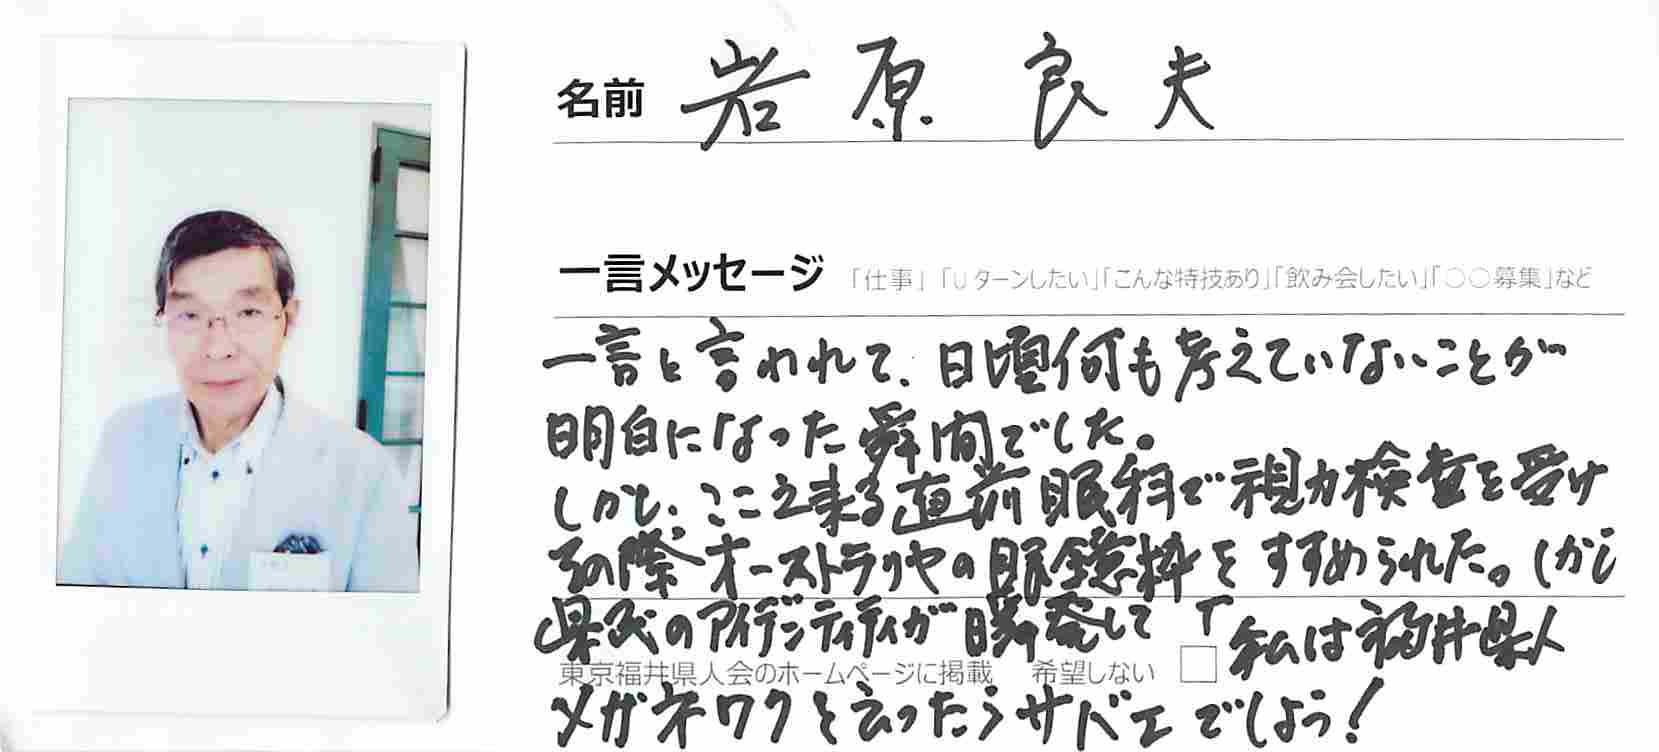 名前 岩原 良夫
一言メッセージ 「仕事」「Uターンしたい」「こんな特技あり」「飲み会したい」「○○募集」など
一言と言われて、日頃何も考えていないことが
明白になった瞬間でした。
しかし、ここえ来る直前眼科で視力検査を受け
その際オーストラリヤの眼鏡枠をすすめられた。しかし
県民のアイデンティティが爆発して「私は福井県人
東京福井県人会のホームページに掲載 希望しない □
メガネワクと云ったらサバエでしょう!